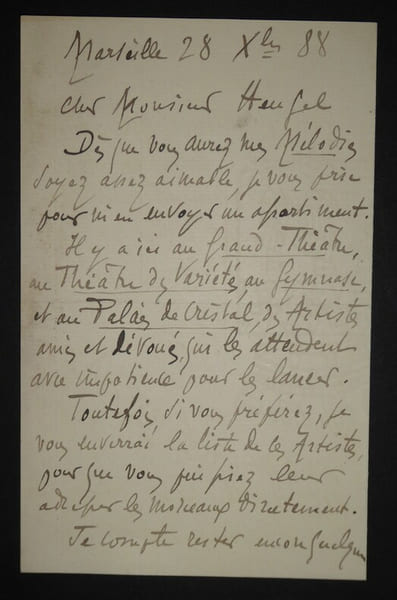 Marseille 28 Xbre 88
Cher Monsieur Heugel
Dès que vous aurez mes Mélodies
soyez assez aimable, je vous prie
pour m'en envoyer un assortiment.
Il y a ici au Grand-Théâtre,
au Théâtre des Variétés, au Gymnase,
et au Palais de Cristal, des Artistes
amis et dévoués qui les attendent
avec impatience pour les lancer.
Toutefois, si vous préférez, je
vous enverrai la liste de ces Artistes,
pour que vous puissiez leur
adresser les morceaux directement.
Je compte rester encore quelques